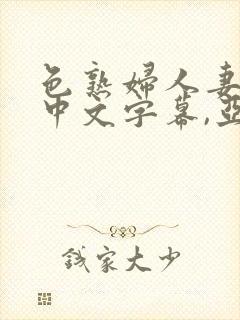 色熟婦人妻
中文字幕,亞
錢家大少